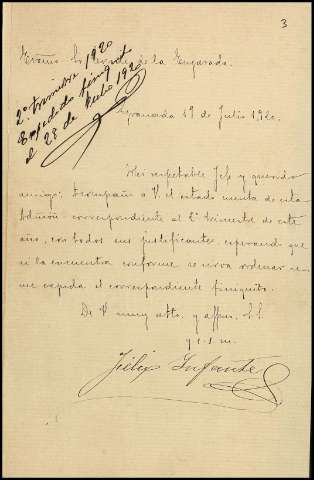 3
Excmo. Sr. Conde de la Enjarada.
2º trimestre 1920
Expedido finiqt
el 28 de Julio 1920
Granada 19 de Julio 1920.
Mi respetable Jefe y querido
amigo: Acompaño a V. el estado cuenta de esta
Admón. correspondiente al 2º trimestre de este
año, con todos sus justificantes, esperando que
si la encuentra conforme se sirva ordenar se
me expida el correspondiente finiquito.
De V. muy atto. y affmo. S.S.
q e. s. m.
Félix Infante